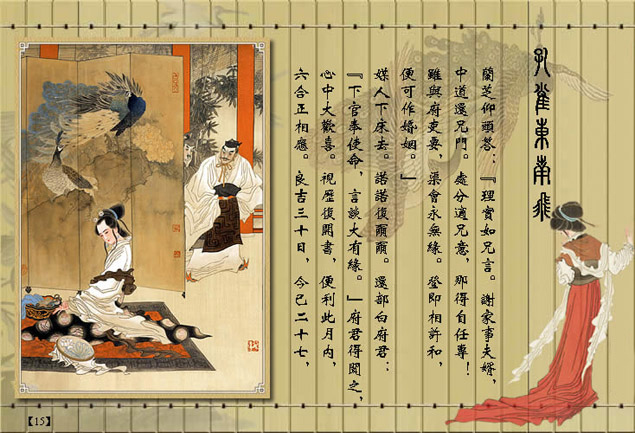 孔雀東南飛
蘭芝仰頭答：『理實如兄言。謝家事夫婿，
中道還兄門。處分適兄意，那得自任專！
雖與府吏要，渠會永無緣。登即相許和，
便可作婚姻。』
媒人下床去。諾諾復爾爾。還部白府君：
『下官奉使命，言談大有緣。』府君得聞之，
心中大歡喜。視歷復開書，便利此月內，
六合正相應。良吉三十日，今已二十七，
【15】